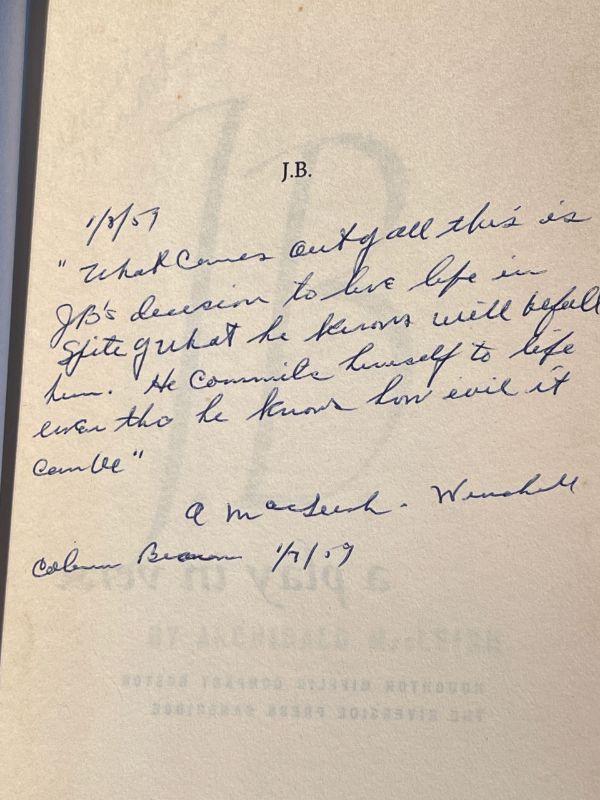 J.B.
1/8/59
"What comes out of all this is
JB's decision to live life in
spite of what he knows will befall
him. He commits himself to life
even tho he knows how evil it
can be"
A MacLeish - Winchell
Column 1/7/59
a play in verse
BY ARCHIBALD MACLEISH
HOUGHTON MIFFLIN COMPANY BOSTON
THE RIVERSIDE PRESS CAMBRIDGE